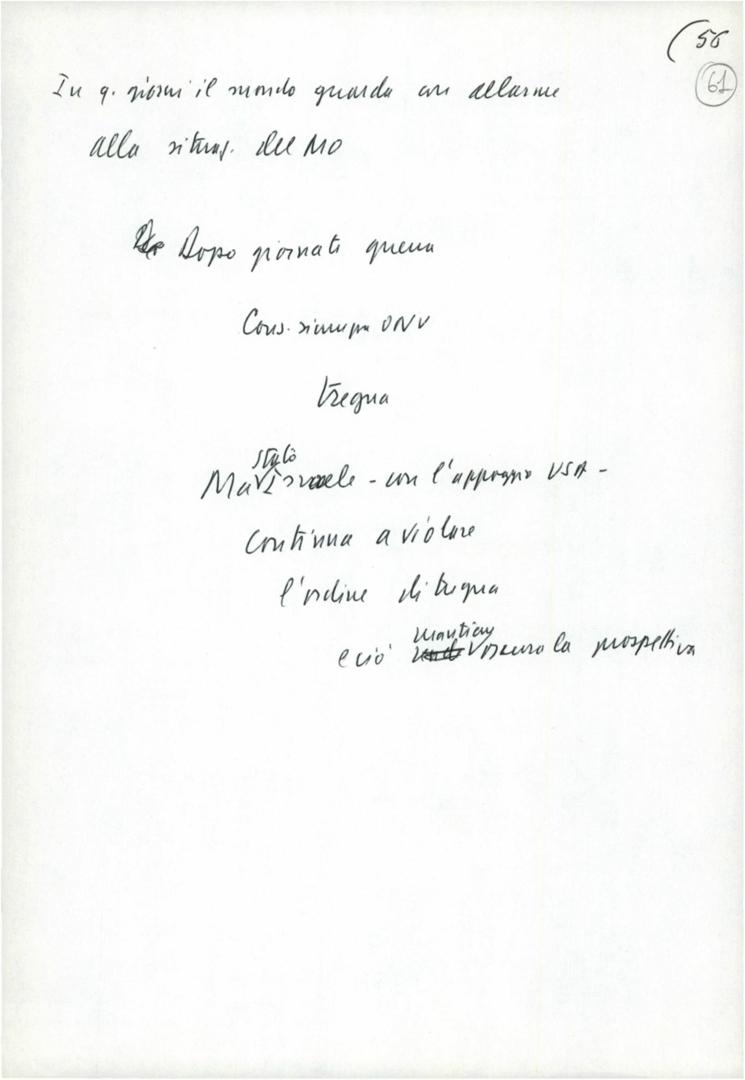 (56
61
In q. giorni il mondo guarda con allarme
alla situaz. del MO
Dopo giornate guerra
Cons. sicurezza ONU
tregua
Ma stato Israele - con l'appoggio USA -
continua a violare
l'ordine di tregua
e ciò mantiene oscura la prospettiva